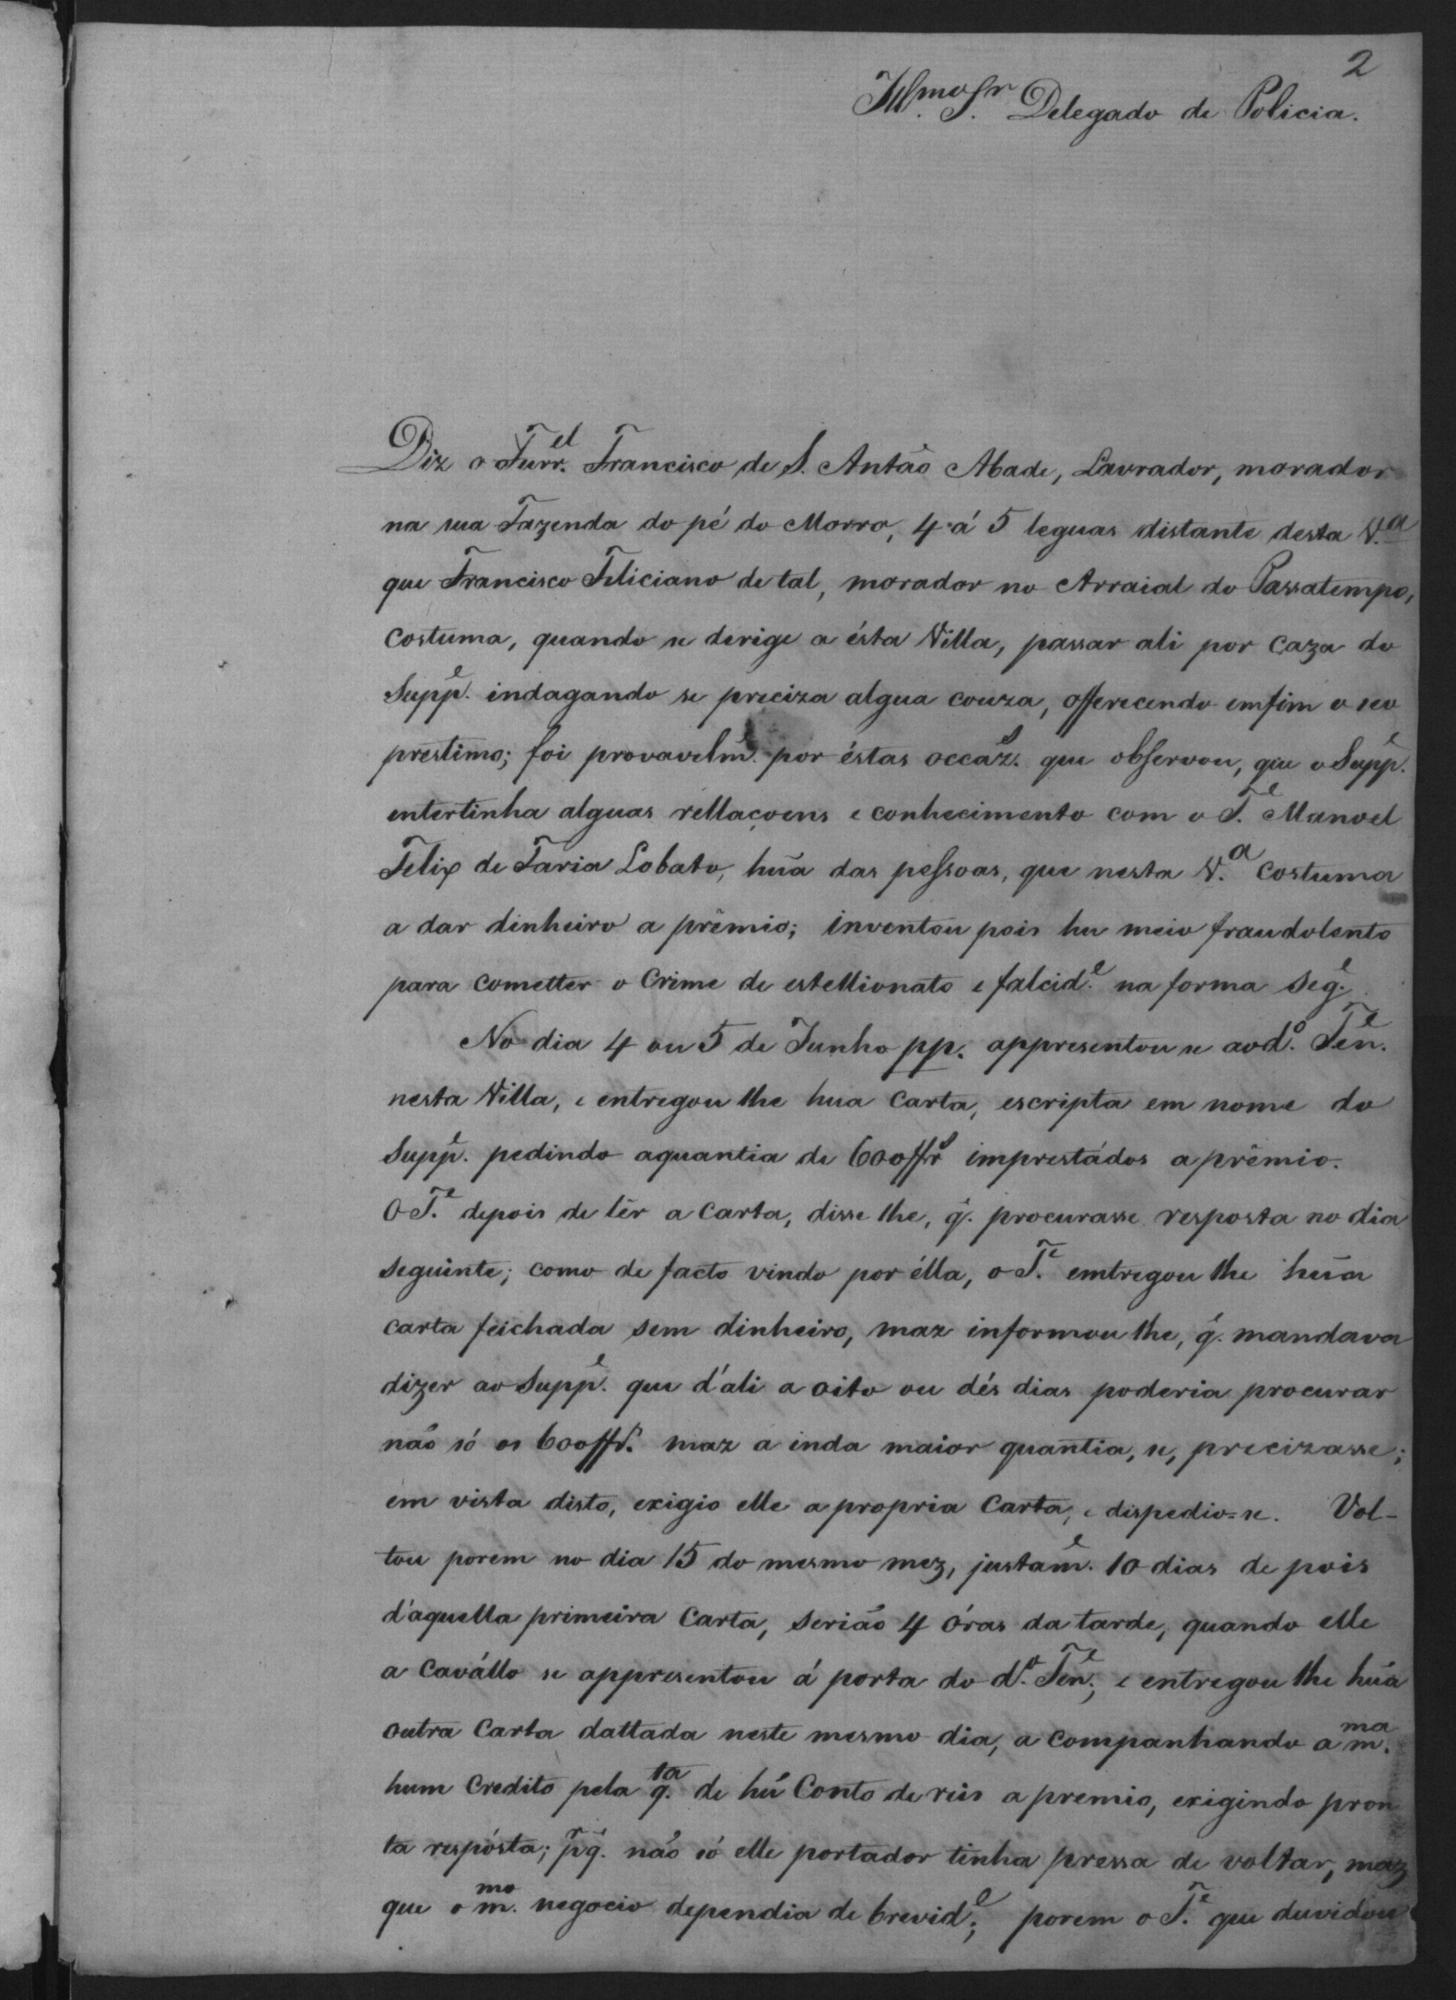 2
Ill.mo S.r Delegado de Policia.
Diz o Furr.el Francisco de S. Antão Abade, Lavrador, morador
na sua Fazenda do pé do Morro, 4 á 5 leguas distante desta V.a
que Francisco Feliciano de tal, morador no Arraial do Passatempo,
costuma, quando se derige a ésta Villa, passar ali por caza do
Supp.e indagando se preciza algua couza, offerecendo emfim o seo
prestimo; foi provavelm.e por éstas occaz.s que observou, que o Supp.e
entertinha alguas rellaçoens e conhecimento com o T.e Manoel
Felix de Faria Lobato, hũa das pessoas, que nesta V.a costuma
a dar dinheiro a prêmio; inventou pois hu meio fraudolento
para cometter o Crime de estellionato e falcid.e na forma seg.e
No dia 4 ou 5 de Junho pp. appresentou se aod.o Ten.e
nesta Villa, e entregou lhe hua carta, escripta em nome do
Supp.e pedindo aquantia de 600$r.s imprestádos a prêmio.
O T.e depois de lêr a carta, disse lhe, q̃. procurasse resposta no dia
seguinte; como de facto vindo por élla, o T.e emtregou lhe hũa
carta feichada sem dinheiro, maz informou lhe, q̃. mandava
dizer ao Supp.e que d'ali a oito ou dés dias poderia procurar
não só os 600$r.s maz a inda maior quantia, se, precizasse;
em vista disto, exigio elle a propria Carta, e dispedio=se. Vol-
tou porem no dia 15 do mesmo mez, justam.e 10 dias de pois
d'aquella primeira Carta, serião 4 óras da tarde, quando elle
a Cavállo se appresentou á porta do d.o Ten.e; e entregou lhe hũa
outra Carta dattada neste mesmo dia, a companhando a m.ma
hum Credito pela q.ta de hũ Conto de reis a premio, exigindo pron
ta respósta; p̃q̃. não só elle portador tinha pressa de voltar, maz
que o m.mo negocio dependia de brevid.e; porem o T.e que duvidou